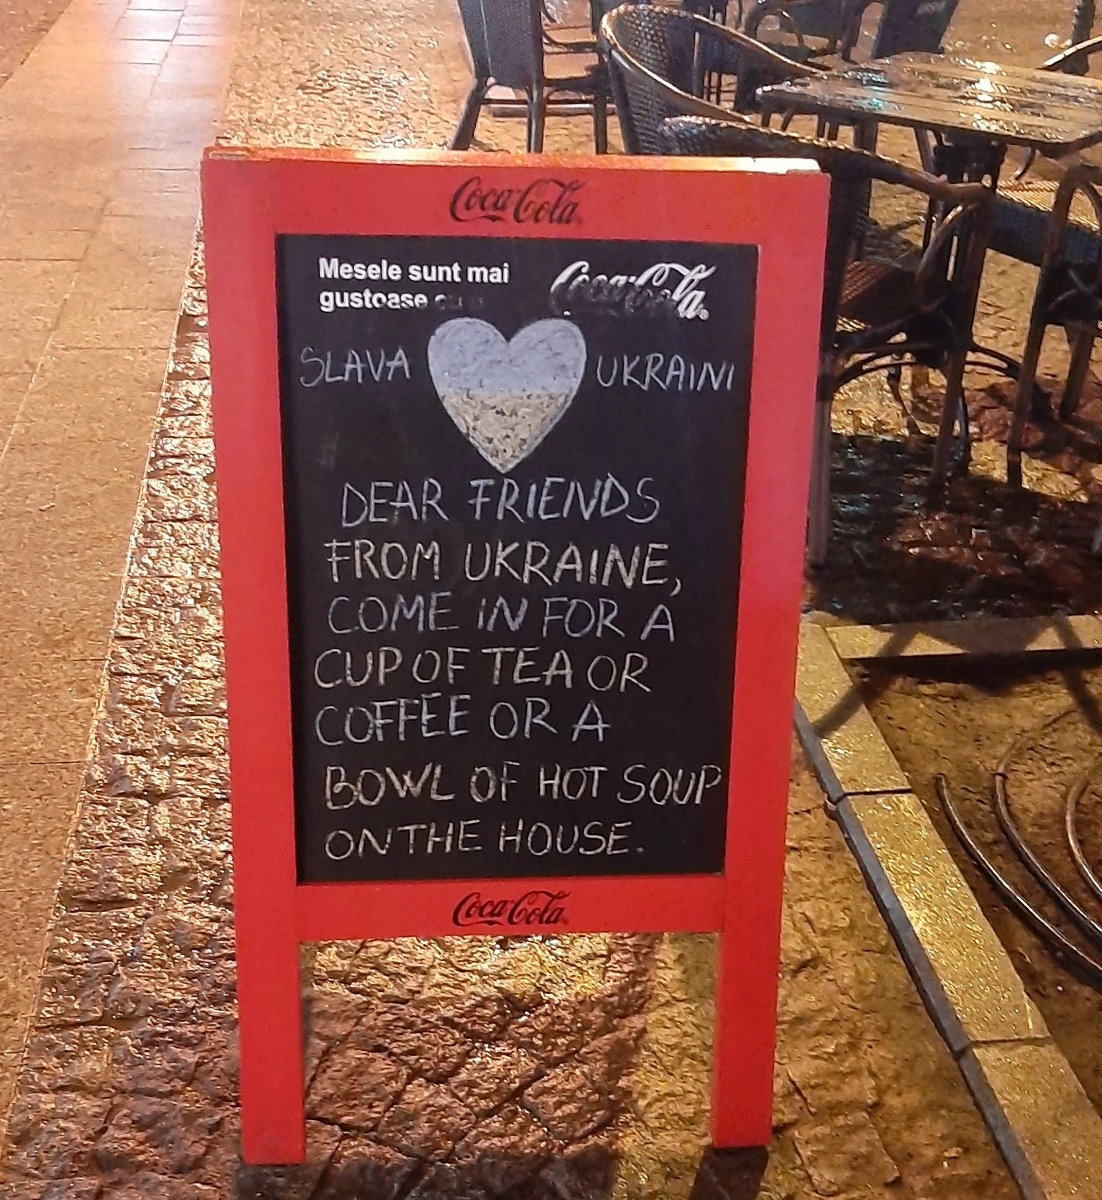 Coca-Cola
Mesele sunt mai
gustoase cu
Coca-Cola
SLAVA UKRAINI
DEAR FRIENDS
FROM UKRAINE,
COME IN FOR A
CUP OF TEA OR
COFFEE OR A
BOWL OF HOT SOUP
ON THE HOUSE.
Coca-Cola